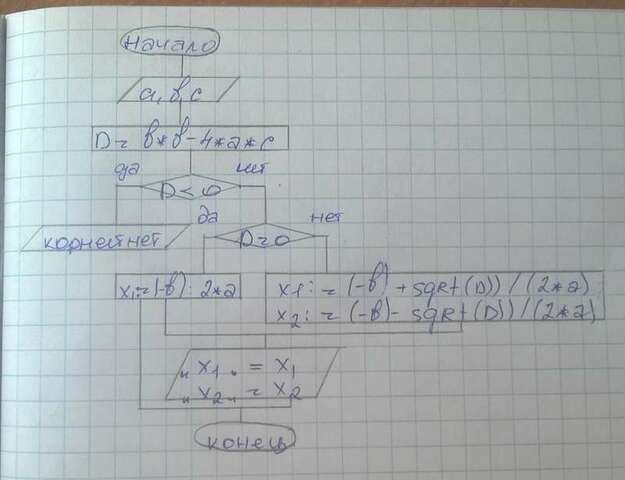 начало
a, в, с
D = в*в-4*a*c
да нет
D < 0
да нет
корней нет
D = 0
x1:=(-в): 2*a
x1: = (-в) + sqrt (D)) / (2*a)
x2: = (-в) - sqrt (D)) / (2*a)
"x1" = x1
"x2" = x2
конец